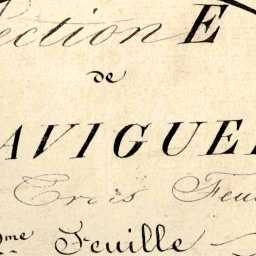 ection E
de
AVIGUE
Trois Feu
me Feuille